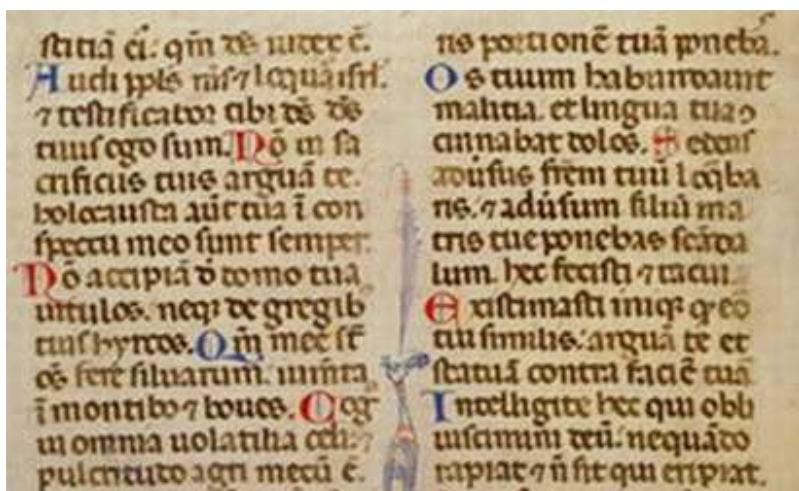 stitiā ei: qm̄ ds̄ iudex ē.
Audi ppls̄ ms̄ ⁊ loquā isrl̄.
⁊ testificabor tibi ds̄ ds̄
tuus ego sum. Nō in sa
crificiis tuis arguā te.
holocausta aūt tua ī con
spectu meo sunt semper.
Nō accipiā d̄ domo tua
uitulos. neqꝫ de gregib
tuis hyrcos. Qm̄ mee st̄
oēs fere siluarum. iumta
ī montibꝰ ⁊ boues. Cog
ui omnia uolatilia celi: ⁊
pulcritudo agri mecū ē.
ris portionē tuā ponebā.
Os tuum habundauit
malitia. et lingua tua ɔ
cinnabat dolos. Sedens
adūsus frēm tuū loq̄ba
ris. ⁊ adūsum filiū ma
tris tue ponebas scāda
lum. hec fecisti ⁊ tacui.
Existimasti iniqꝫ qꝫ eō
tui similis: arguā te et
statuā contra faciē tuā
Intelligite hec qui obli
uiscimini deū: nequādo
rapiat ⁊ n̄ sit qui eripiat.